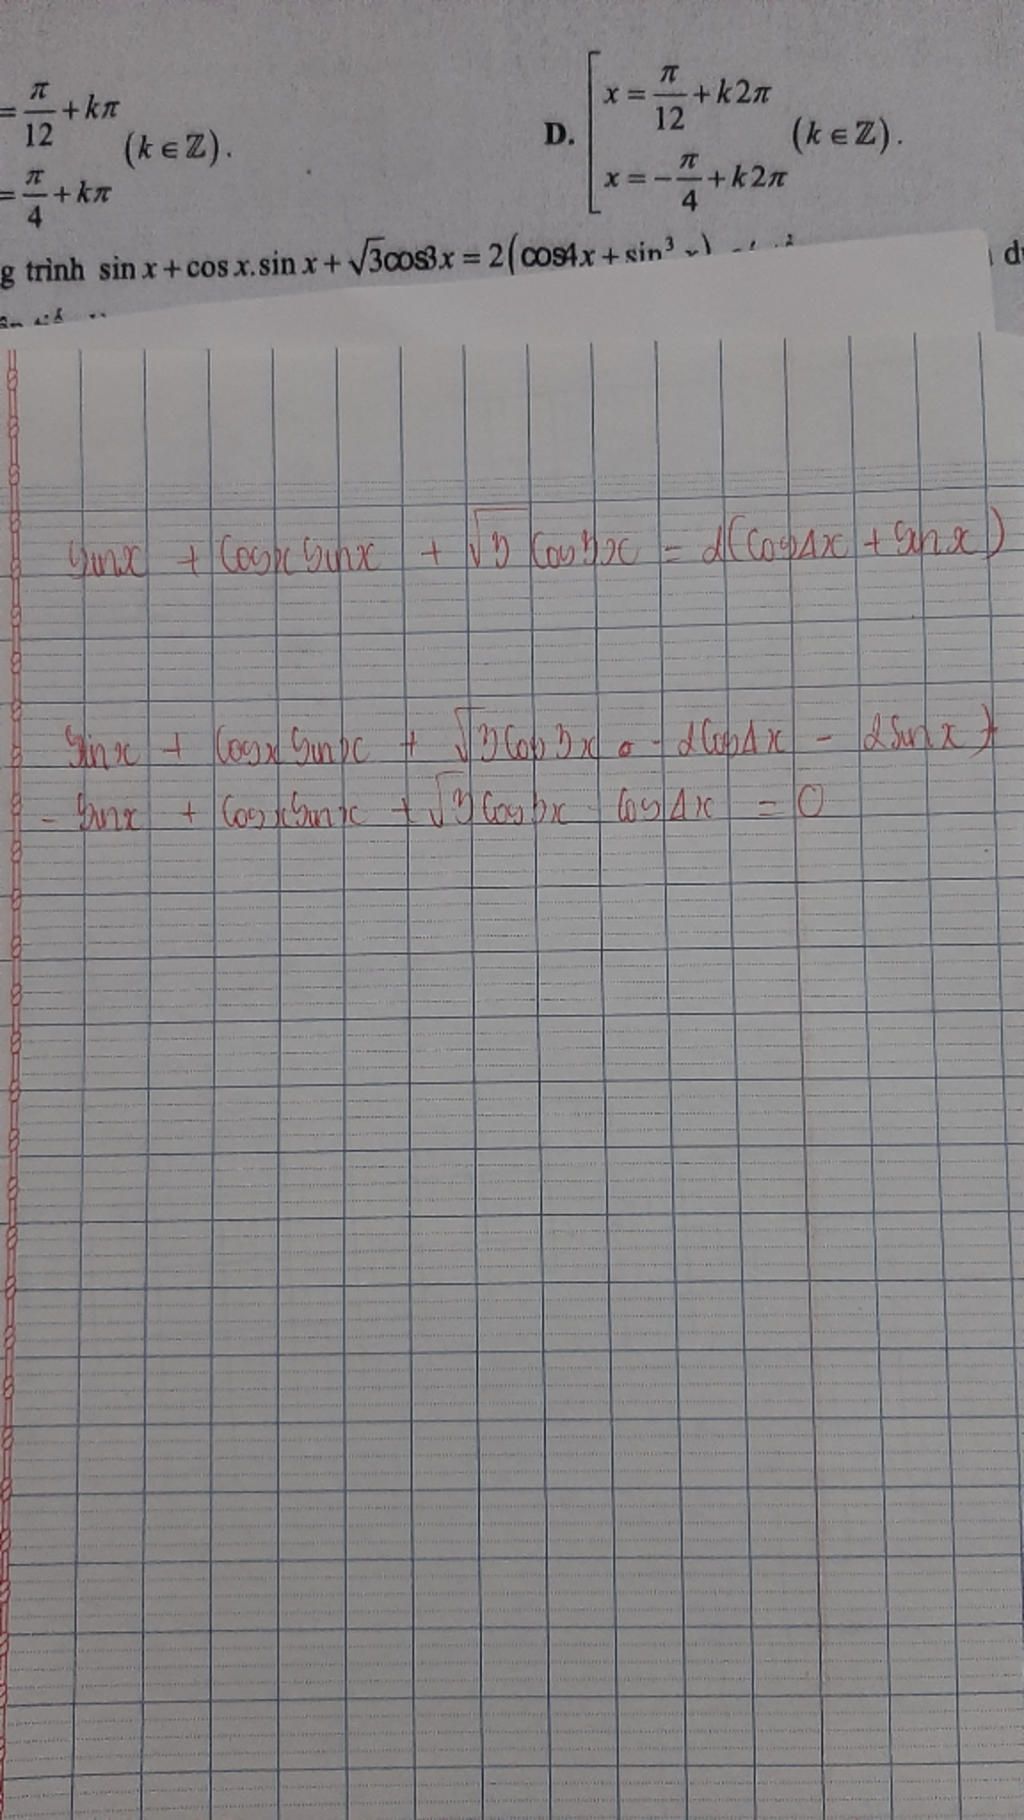 = π/12 + kπ
(k ∈ ℤ).
= π/4 + kπ
D. [ x = π/12 + k2π
(k ∈ ℤ).
x = -π/4 + k2π
g trình sin x + cos x. sin x + √3cos3x = 2(cos4x + sin³ x)
sinx + cosx sinx + √3 cos3x = 2(cos4x + sinx)
sinx + cosx sinx + √3cos3x = - 2cos4x - 2sinx
- sinx + cosxsinx + √3cos3x - cos4x = 0